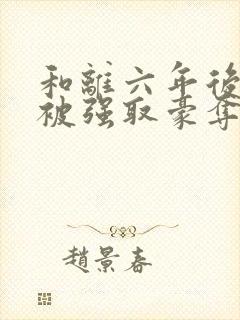 和離六年後
被强取豪奪
趙景春